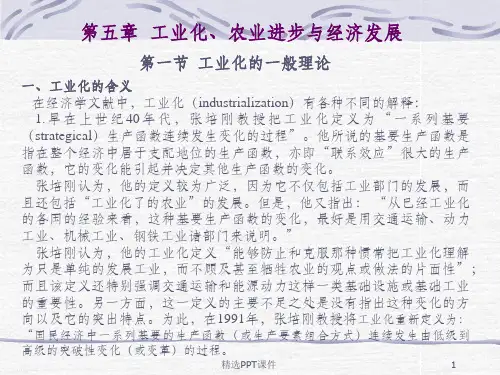 第五章 工业化、农业进步与经济发展
第一节 工业化的一般理论
一、工业化的含义
在经济学文献中，工业化（industrialization）有各种不同的解释：
1.早在上世纪40年代，张培刚教授把工业化定义为“一系列基要
（strategical）生产函数连续发生变化的过程”。他所说的基要生产函数是
指在整个经济中居于支配地位的生产函数，亦即“联系效应”很大的生产
函数，它的变化能引起并决定其他生产函数的变化。
张培刚认为，他的定义较为广泛，因为它不仅包括工业部门的发展，而
且还包括“工业化了的农业”的发展。但是，他又指出：“从已经工业化
的各国的经验来看，这种基要生产函数的变化，最好是用交通运输、动力
工业、机械工业、钢铁工业诸部门来说明。”
张培刚认为，他的工业化定义“能够防止和克服那种惯常把工业化理解
为只是单纯的发展工业，而不顾及甚至牺牲农业的观点或做法的片面性”；
而且该定义还特别强调交通运输和能源动力这样一类基础设施或基础工业
的重要性。另一方面，这一定义的主要不足之处是没有指出这种变化的方
向以及它的突出特点。为此，在1991年，张培刚教授将工业化重新定义为：
“国民经济中一系列基要的生产函数（或生产要素组合方式）连续发生由低级到
高级的突破性变化（或变革）的过程。
精选PPT课件
1